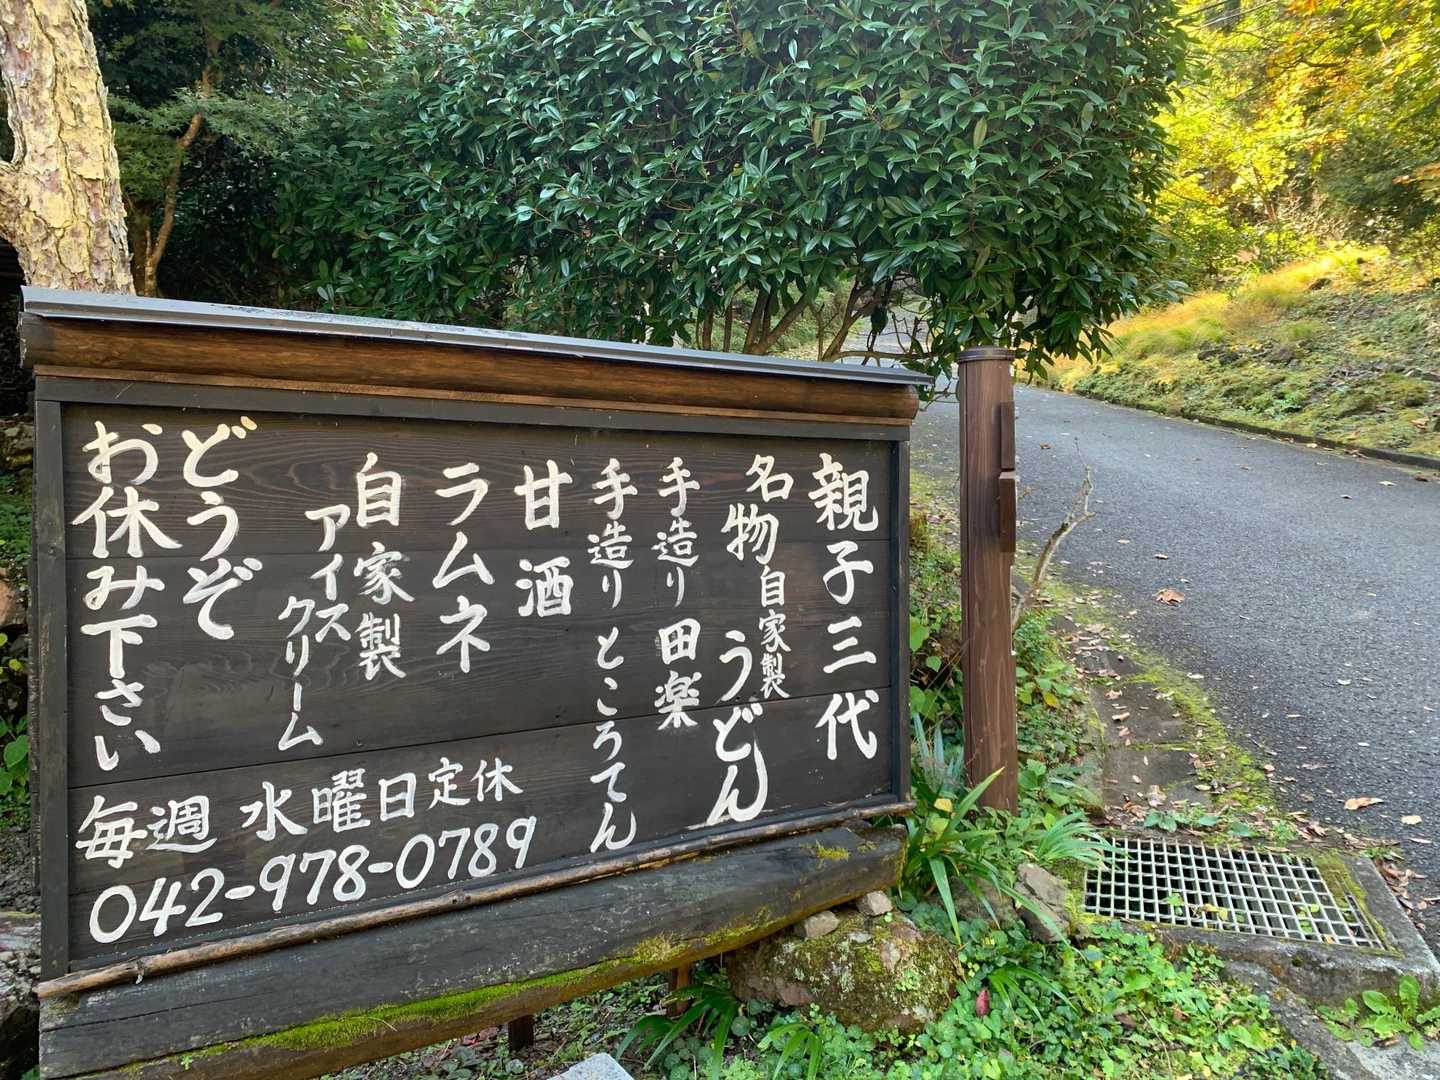 親子三代
名物 自家製
うどん
手造り 田楽
手造り ところてん
甘酒
ラムネ
自家製
アイス
クリーム
どうぞ
お休み下さい
毎週 水曜日定休
042-978-0789